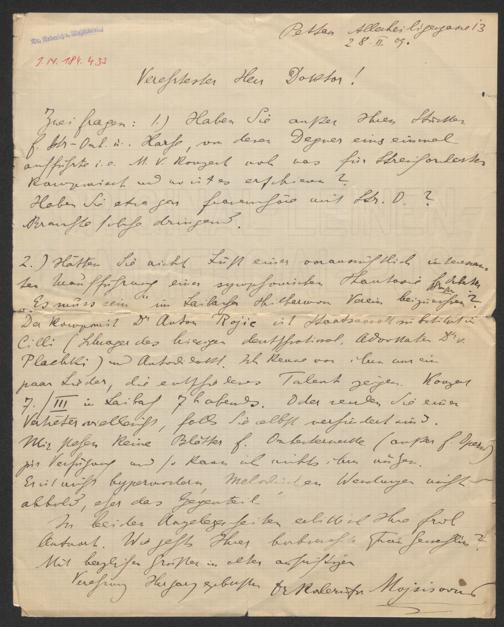 Pettau Allerheiligengasse 13
28. II. 09.
I N. 184.433
Verehrtester Herr Doktor!
Zwei Fragen: 1.) Haben Sie außer Ihren Stücken
f. Str-Orch. u. Harfe, von denen Degner eins einmal
aufführte i. e. M. V. Konzert noch was für Streichorchester
komponiert und wo ist es erschienen?
Haben Sie etwa gar Frauenchöre mit Str. O.?
Brauchte solche dringend.
2.) Hätten Sie nicht Lust einer voraussichtlich interessan-
ten Uraufführung einer symphonischen Phantasie f. Orchester
"Es muss sein" im Laibacher Verein beizuwohnen?
Der Komponist Dr Anton Rojic ist Staatsanwaltsubstitut in
Cilli (Schwager des hiesigen deutschnational. Advokaten Dr v.
Plachki) und Autodidakt. Ich kenne von ihm nur ein
paar Lieder, die entschiedenes Talent zeigen. Konzert
7./III in Laibach 7h abends. Oder senden Sie einen
Vertreter vielleicht, falls Sie selbst verhindert sind.
Mir stehen keine Blätter f. (außer f. Opern)
zur Verfügung und so kann ich nichts ihm nützen.
Er ist nicht hypermodern melodischen Wendungen nicht
abhold, eher das Gegenteil.
In beiden Angelegenheiten erbittet Ihre frdl.
Antwort. Wie geht's Ihrer Frau Gemahlin?
Mit herzlichen Grüßen in alter aufrichtiger
Verehrung Ihr ganz ergebenster Dr Roderich Mojsisovics